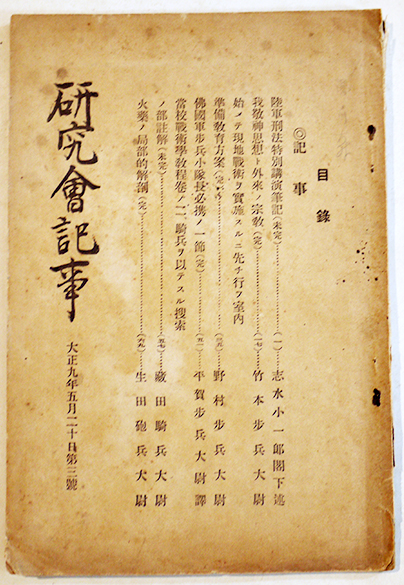 目錄
◎記事
陸軍刑法特別講演筆記(未完)……(一)志水小一郎閣下述
我敬神思想ト外來ノ宗敎(完)……(一七)竹本步兵大尉
始メテ現地戰術ヲ實施スルニ先チ行フ室内
準備敎育方案(完)……野村步兵大尉
佛國軍步兵小隊長必携ノ一節(完)……(五一)平賀步兵大尉譯
當校戰術學敎程卷ノ二、騎兵ヲ以テスル搜索
ノ部註解(未完)……(五七)藏田騎兵大尉
火藥ノ局部的解剖(完)……(六九)生田砲兵大尉
研究會記事
大正九年五月二十日第三號